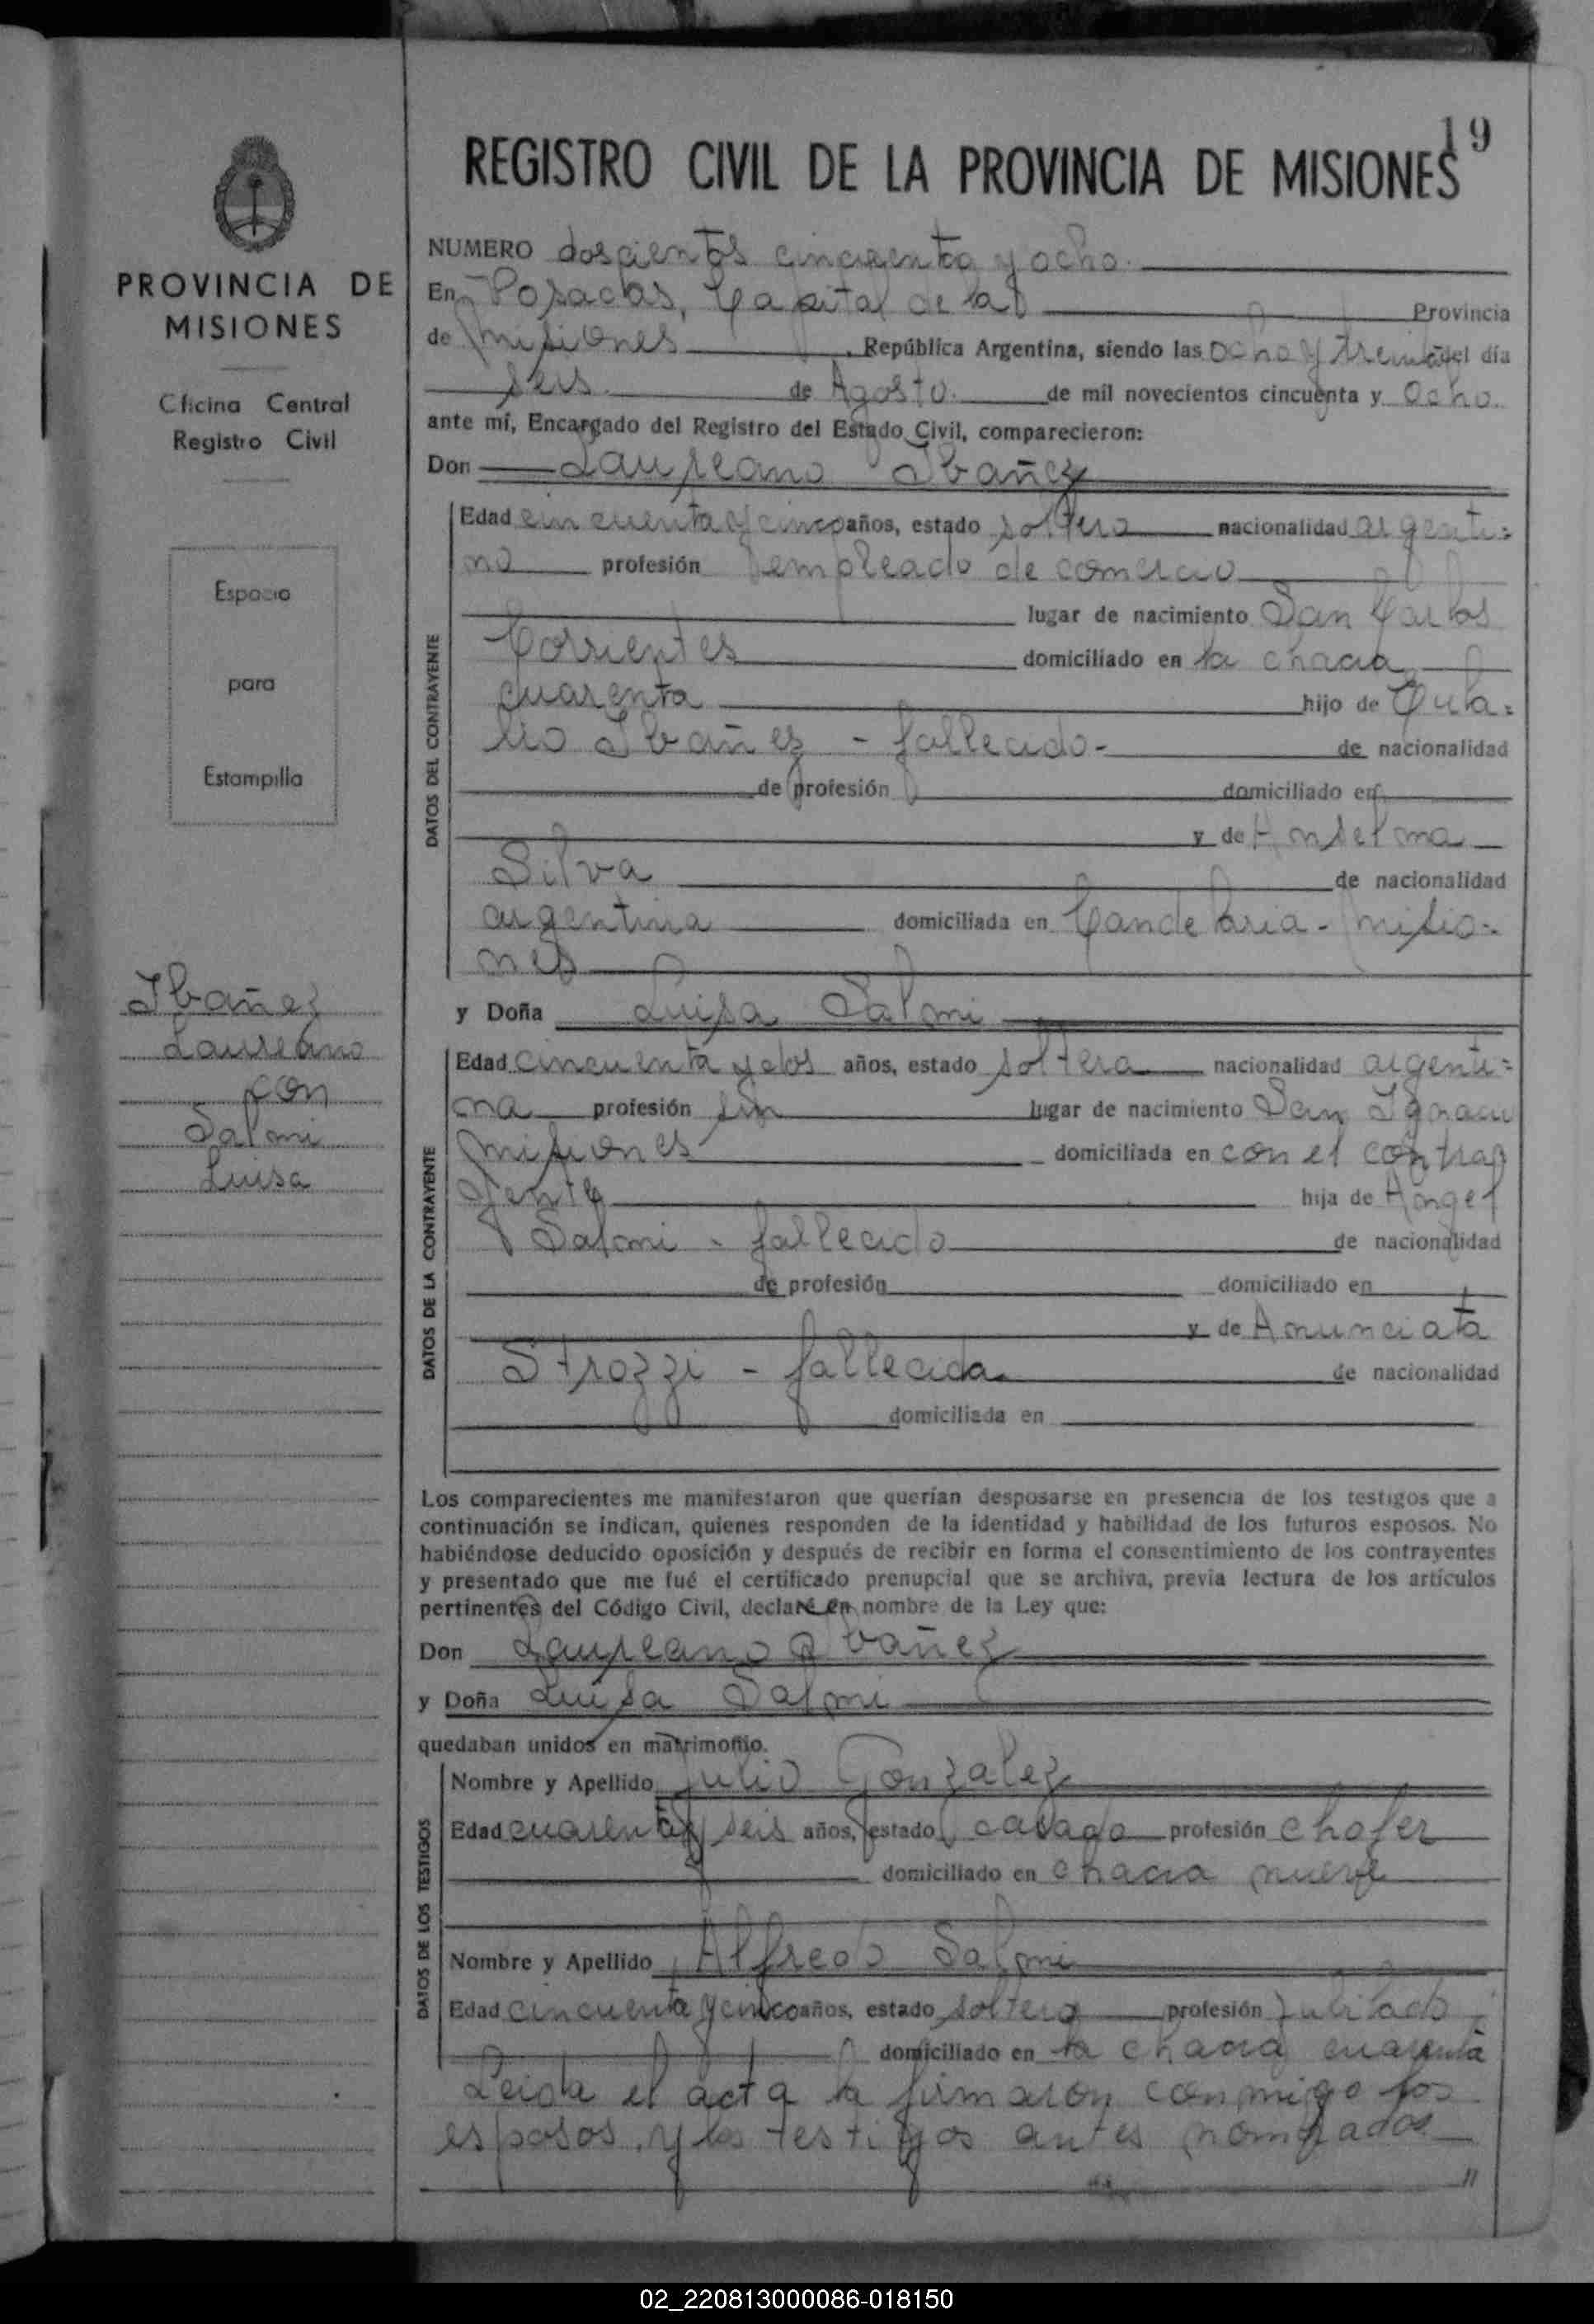 19
REGISTRO CIVIL DE LA PROVINCIA DE MISIONES
PROVINCIA DE
MISIONES
Oficina Central
Registro Civil
Espacio
para
Estampilla
Ibañez
Laureano
con
Salmi
Luisa
NUMERO doscientos cincuenta y ocho
En Posadas, Capital de la Provincia
de Misiones, República Argentina, siendo las ocho y treinta del día
seis de Agosto de mil novecientos cincuenta y ocho
ante mí, Encargado del Registro del Estado Civil, comparecieron:
Don Laureano Ibañez
DATOS DEL CONTRAYENTE
Edad cincuenta y cinco años, estado soltero nacionalidad argenti=
no profesión empleado de comercio
lugar de nacimiento San Carlos
Corrientes domiciliado en la chacra
cuarenta hijo de Eula=
lio Ibañez - fallecido - de nacionalidad
de profesión domiciliado en
y de Anselma
Silva de nacionalidad
argentina domiciliada en Candelaria - Misio=
nes
y Doña Luisa Salmi
DATOS DE LA CONTRAYENTE
Edad cincuenta y dos años, estado soltera nacionalidad argenti=
na profesión sin lugar de nacimiento San Ignacio
Misiones domiciliada en con el contra
yente hija de Angel
Salmi - fallecido de nacionalidad
de profesión domiciliado en
y de Anunciata
Strozzi - fallecida de nacionalidad
domiciliada en
Los comparecientes me manifestaron que querían desposarse en presencia de los testigos que a
continuación se indican, quienes responden de la identidad y habilidad de los futuros esposos. No
habiéndose deducido oposición y después de recibir en forma el consentimiento de los contrayentes
y presentado que me fué el certificado prenupcial que se archiva, previa lectura de los artículos
pertinentes del Código Civil, declaré en nombre de la Ley que:
Don Laureano Ibañez
y Doña Luisa Salmi
quedaban unidos en matrimonio.
DATOS DE LOS TESTIGOS
Nombre y Apellido Julio Gonzalez
Edad cuarenta y seis años, estado casado profesión chofer
domiciliado en chacra nueve
Nombre y Apellido Alfredo Salmi
Edad cincuenta y cinco años, estado soltero profesión jubilado
domiciliado en la chacra cuarenta
Leida el acta la firmaron conmigo los
esposos y los testigos antes nombrados
02_220813000086-018150